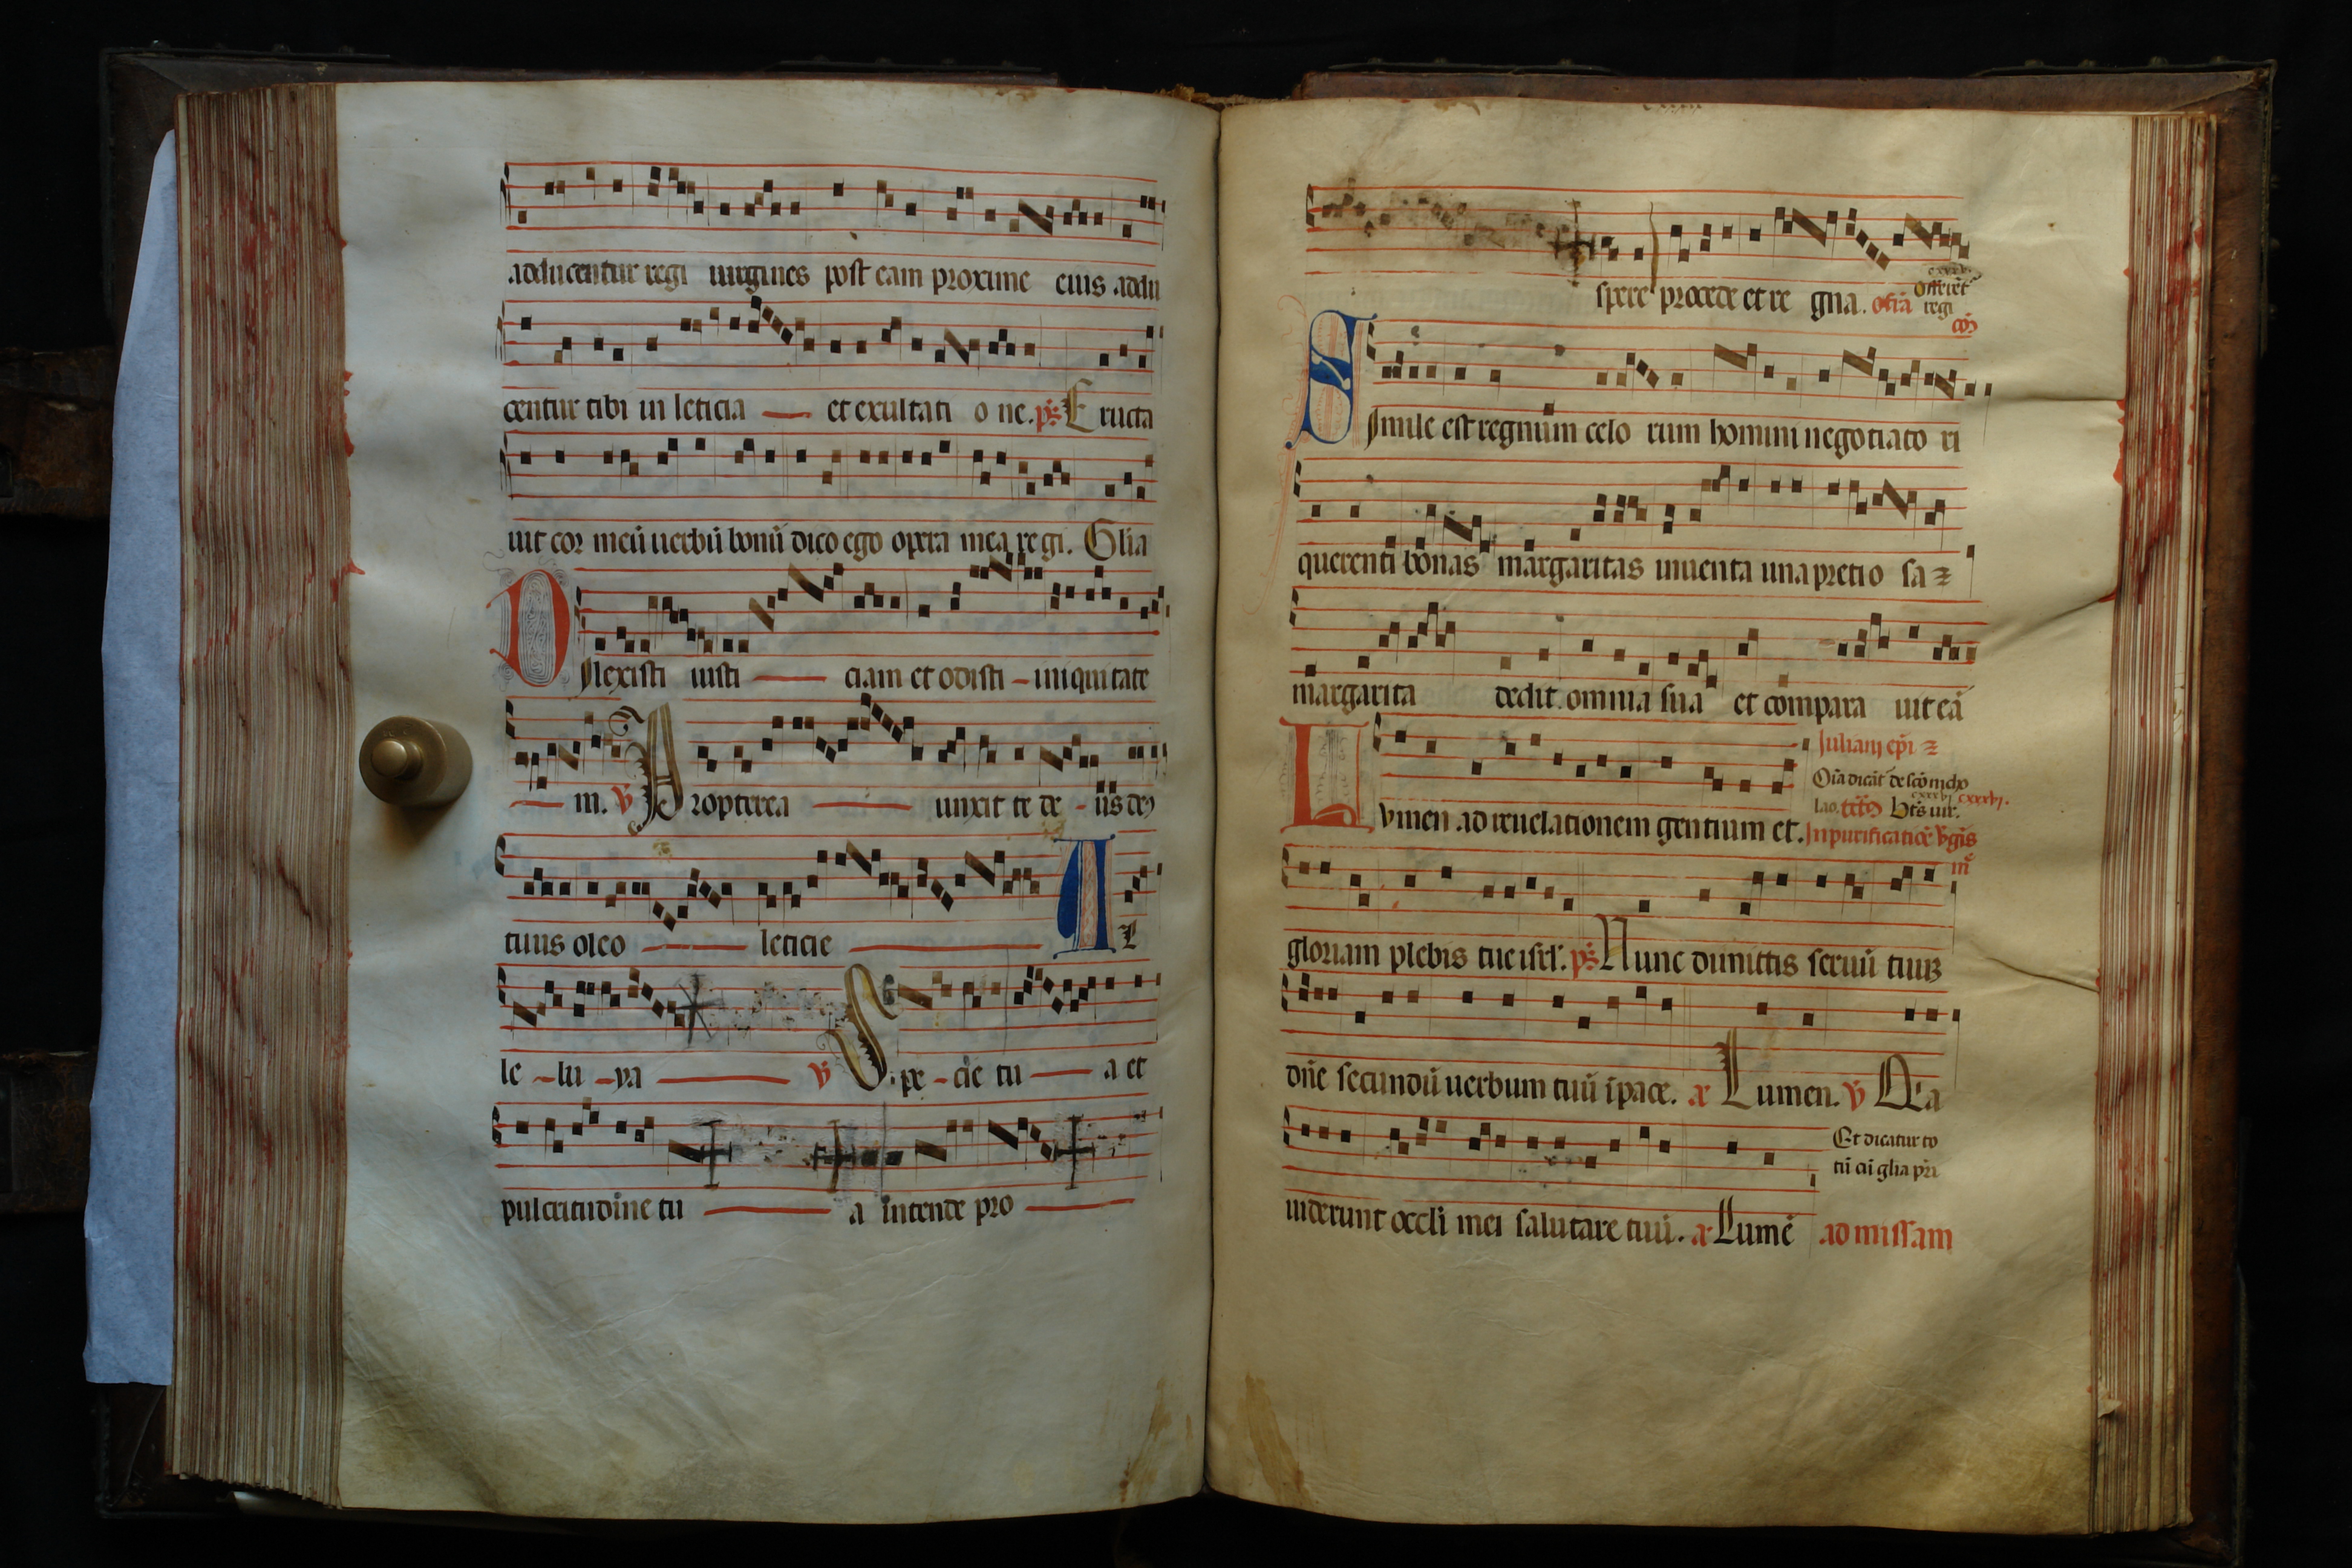 adducentur regi uirgines post eam proxime eius addu
centur tibi in leticia et exultati o ne. ps. Eructa
uit cor meū uerbū bonū dico ego opera mea regi. Glia
Dilexisti iusti ciam et odisti iniquitate
m. V Propterea unxit te de us de9
tuus oleo leticie Al
le lu ya V Spe cie tu a et
pulcritudine tu a intende pro
spere procede et re gna. Offerēt
regi
cō
Simile est regnum celo rum homini negotiato ri
querenti bonas margaritas inuenta una pretio sa
margarita dedit omnia sua et compara uit eā
Iuliani epi
Oīa dicāt de scō nicho
lao.
Lumen ad reuelationem gentium et. In purificatiōe v̄gis
m
gloriam plebis tue isrl. ps. Nunc dimittis seruū tuū
dn̄e secundū uerbum tuū ī pace. a Lumen. V Q'a
Et dicatur to
tū cū glia pri
uiderunt occli mei salutare tuū. a Lumē ad missam